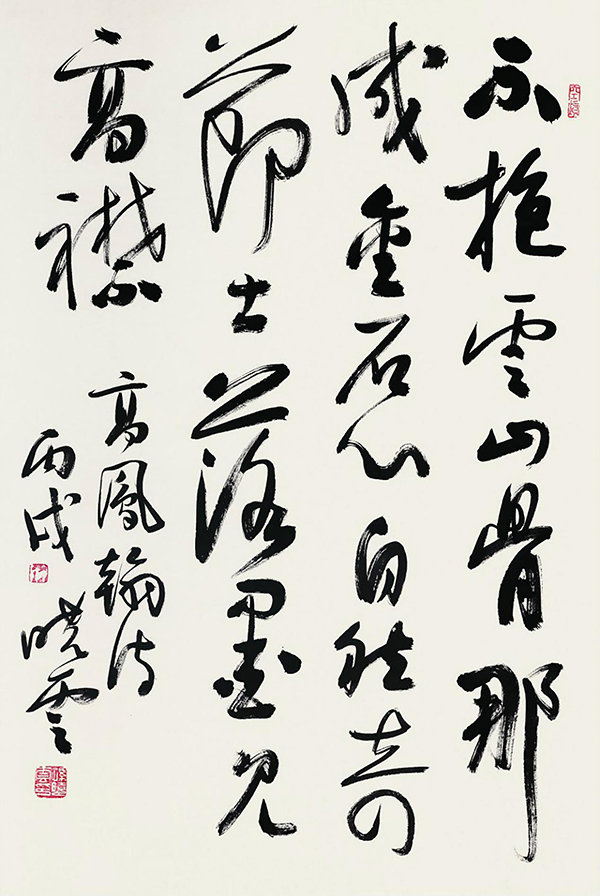 不抱雲山骨那
成金石心自然奇
節士落墨見
高襟 高鳳翰詩
丙戌 曉雲